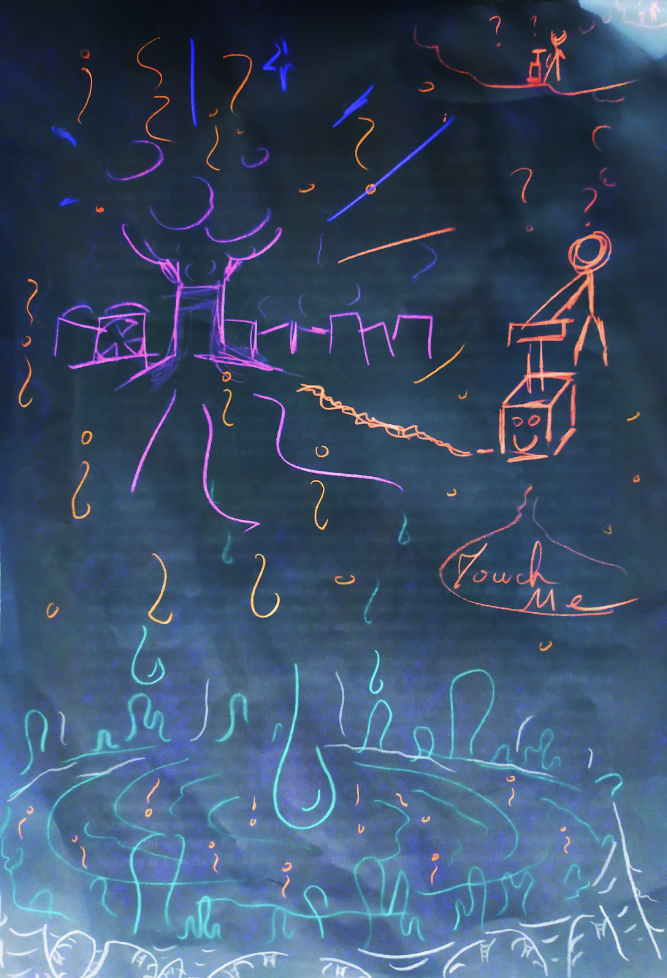 Touch
Me